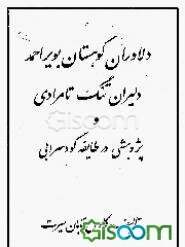 دلاوران کوهستان بویراحمد
دلیران تنگ تامرادی
و
پژوهشی در طایفه گودسرابی
Gisoom